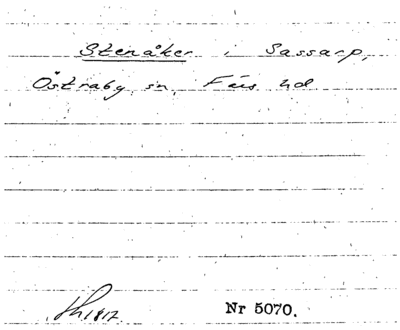 Stenåker i Sassarp,
Östraby sn, Färs hd
Nr 5070.